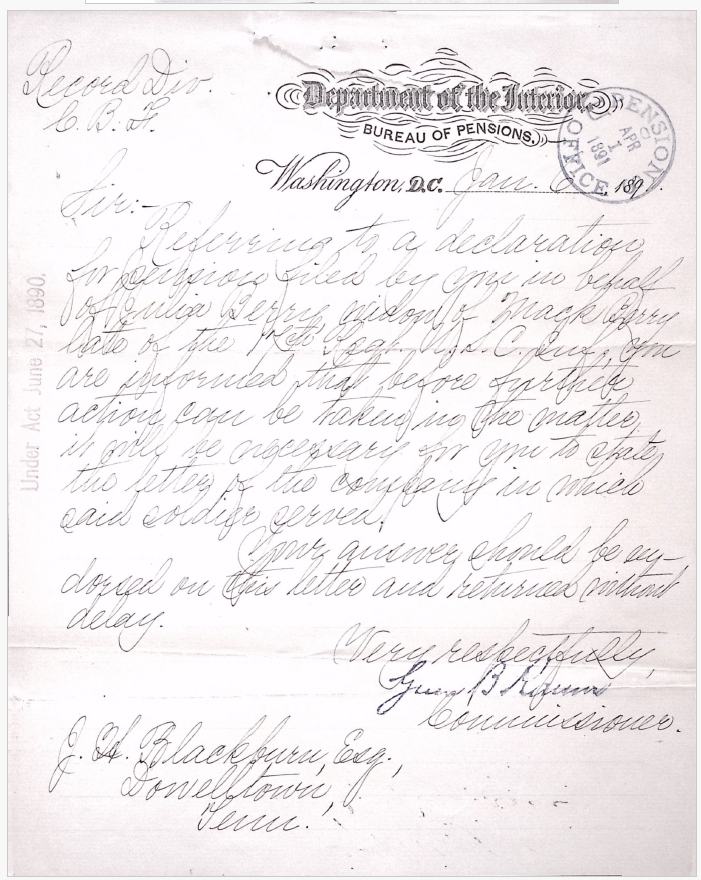 Record Div.
C. B. F.
Department of the Interior,
BUREAU OF PENSIONS,
Washington, D.C. Jan. 6, 189
U.S. PENSION OFFICE
APR
1
1891
Sir:-
Referring to a declaration
for pension filed by you in behalf
of Julia Berry widow of Mack Berry
late of the Regt. U.S.C. Inf., you
are informed that before further
action can be taken in the matter,
it will be necessary for you to state
the letter of the company in which
said soldier served.
Your answer should be en-
dorsed on this letter and returned without
delay.
Very respectfully,
Green B Raum
Commissioner.
J. H. Blackburn, Esq.,
Dowelltown,
Tenn.
Under Act June 27, 1890.